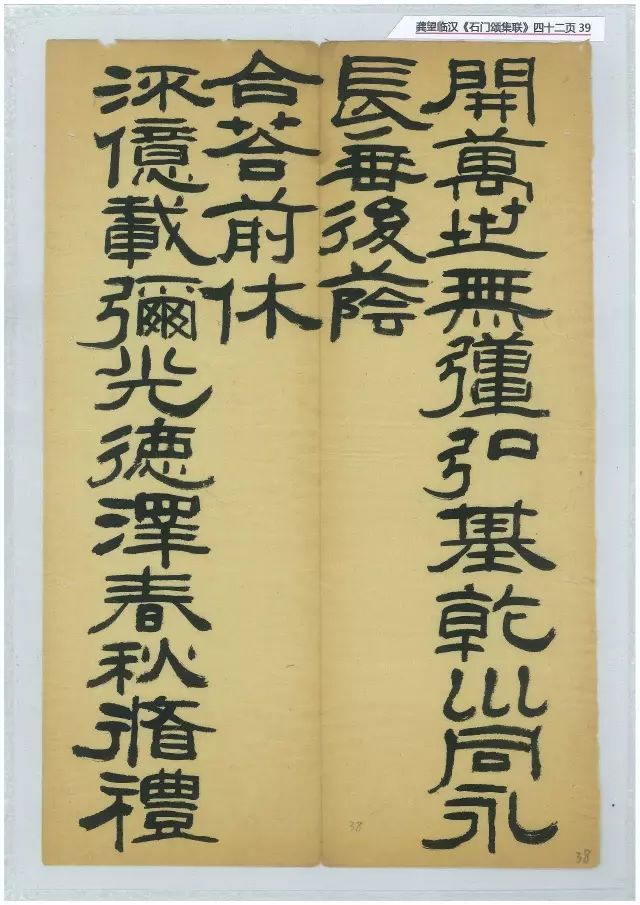 龚望临汉《石门颂集联》四十二页 39
開萬世無疆弘基乾川同永
長垂後蔭
流億載彌光德澤春秋脩禮
合荅前休
38
38